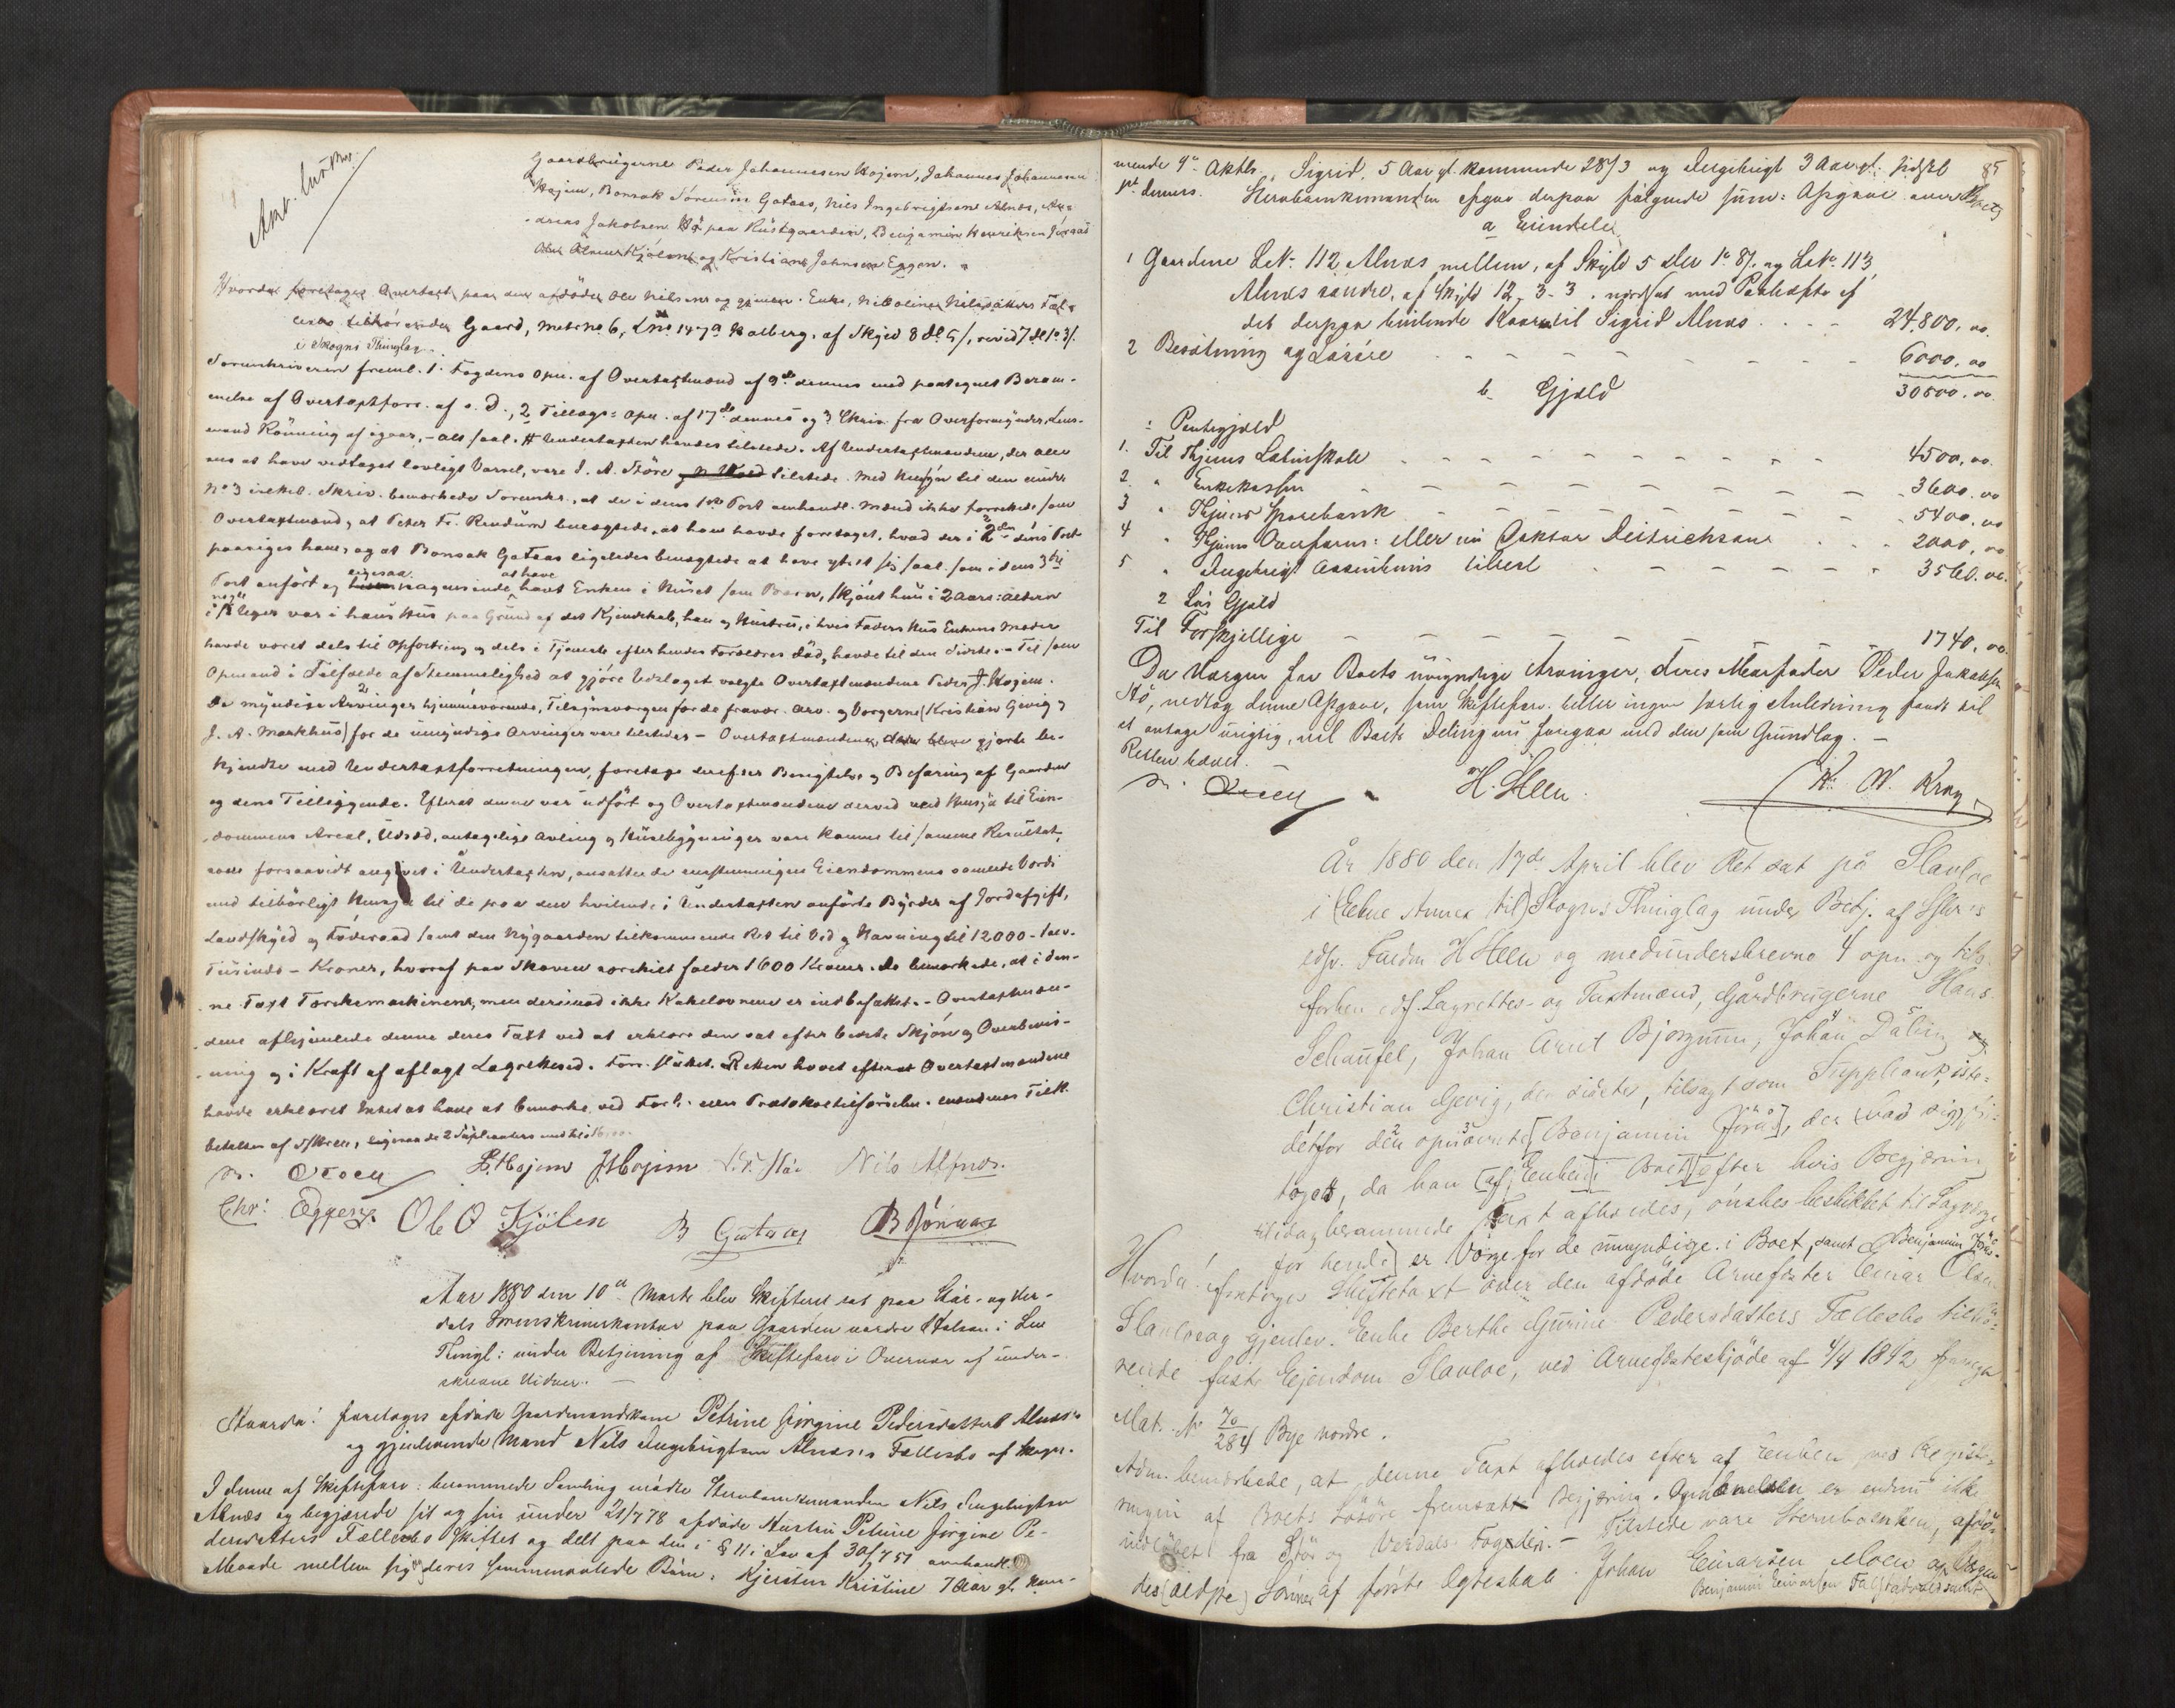 Gaardbrugerne Peder Johannesen Hojem, Johannes Johannesen
Hojem, Bonsak Sørensen Gotaas, Nils Ingebrigtsen Alnæs, An-
dreas Jakobsen Hø paa Rustgaarden, Benjamin Henriksen Jøraas
Ole Olsen Kjölen og Kristian Johnsen Eggen.
Hvorda foretages Overtaxt paa den afdøde Ole Nilsens og gjenl. Enke, Nikoline Nilsdatters Fæl-
lesbo tilhørende Gaard, Matr No 6, Lno 147a Halberg, af Skyld 8 dl. 5 /, revid 7 dl 1o 3/.
i Skogns Thinglag.
Sorenskriveren freml. 1. Fogdens Opn. af Overtaxtmænd af 9de dennes med paategnet Beram-
melse af Overtaxtforr. af s. D., 2 Tillægs: Opn. af 17de dennes og 3 Skriv. fra Overformynder, Lens-
mand Rönning af igaar, - als saal. # Undertaxten havdes tilstede. Af Undertaxtmændene, der alle
ans at have vedtaget lovligt Varsel, vare J. A. Störe tilstede. Med Hensyn til den under
No 3 indkl. Skriv. bemærkede Sorenskr., at de i dens 1ste Post omhandl. Mænd ikke forrettede som
Overtaxtmænd, at Peter Fr. Rindum benægtede, at han havde foretaget, hvad der i dens 2den Post
paasiges ham, og at Bonsak Gotaas ligeledes benægtede at have ytret sig saal. som i dens 3die
Post anført og ligesaa at have havt Enken i Huset som Barn, skjönt hun i 2 Aars: Alderen
nogle Uger var i hans Hus paa Grund af det Kjendskab, han og Hustru, i hvis Faders Hus Enkens Moder
havde været dels til Opfostring og dels i Tjeneste efter hendes Forældres Död, havde til den Sidste. - Til som
Opmand i Tilfælde af Stemmelighed at gjöre Udslaget valgte Overtaxtmændene Peder J. Hojem.
De myndige Arvinger hjemmeværende, Tilsynsværgen for de fravær. Arv. og Værgerne (Kristian Gevig og
J. A. Markhus) for de umyndige Arvinger vare tilstede. - Overtaxtmændene, bleve gjorte be-
kjendte med Undertaxtforretningen, foretoge derefter Besigtelse og Befaring af Gaarden
og dens Tilliggende. Efterat denne var udfört og Overtaxtmændene derved med Hensyn til Eien-
dommens Areal, Udsæd, antagelige Avling og Husebygninger vare komne til samme Resultat,
som forsaavidt angivet i Undertaxten, ansatte de enstemmigen Eiendommens samlede Værdi
med tilbörligt Hensyn til de paa den hvilende i Undertaxten anförte Byrder af Jordafgift,
Landskyld og Föderaad samt den Nygaarden tilkommende Ret til Ved og Havning til 12000 - tolv-
Tusinde - Kroner, hvoraf paa Skoven særskilt falder 1600 Kroner. De bemærkede, at i den-
ne Taxt Tærskemaskinen, men derimod ikke Kakelovnene er indbefattet. - Overtaxtmæn-
dene afhjemlede denne deres Taxt ved at erklære den sat efter bedste Skjön og Overbevis-
ning og i Kraft af aflagt Lagretteed. Forr. sluttet. Retten hævet efterat Overtaxtmændene
havde erklæret Intet at have at bemærke ved Forr. eller Protokoltilförselen.
betalen af
P. Hojem J. Hojem Nils Alfnæs.
Chr: Eggen. Ole O Kjölen B Gotaas B Jöraas
Aar 1880 den 10de Marts blev Skifteret sat paa Stör- og Ver-
dals Sorenskriverkontor paa Gaarden nordre Stalsen i Lev
Thingl: under Betjening af Skifteforv. i Overvær af under-
skrevne Vidner. -
Hvorda! foretages afdöde Gaardmandskone Petrine Jörgine Pedersdatter Alnæs's
og gjenlevende Mand Nils Ingebrigtsen Alnæs's Fællesbo af Skogn.
I denne af Skifteforv: berammede Samling mödte Stervboenkemanden Nils Ingebrigtsen
Alnæs og begjærede sit og sin under 21/7 78 afdöde Hustru Petrine Jörgine Pe-
dersdatters Fællesbo Skiftet og delt paa den i § 11 i Lov af 30/7 51 omhandl.
Maade mellem sig og deres sammenavlede Börn: Kjersten Kristine 7 Aar gl. kom-
85
mende 4de Oktbr., Sigrid, 5 Aar gl. kommende 28/3 og Ingebrigt 3 Aar gl. sidstl
1st dennes. Stervboenkemanden opgav derpaa fölgende sum: Opgave over Boets
a Eiendele
1 Gaardene LNo 112, Alnæs mellem, af Skyld 5 Dlr 1o 8/. og LNo. 113,
Alnæs søndre, af Skyld 12 - 3 - 3.
det derpaa hvilende Kaar til Sigrid Alnæs . . . 24,800, 00.
2 Besætning og Lösöre - - - - - - 6000, 00
30800. 00.
b. Gjæld
1 Pantegjæld
1. Til Thjems Latinskole - - - - - - 4500, 00.
2. " Enkekassen - - - - - - 3600. 00
3 " Thjems Sparebank - - - - - - 5400, 00
4 " Thjems Overform: eller nu Doktor Deitrichsons . . . 2000, 00
5 " Ingebrigt Assenheims - - - - - 3560. 00.
2 Lös Gjæld
Til Forskjellige - - - - - - 1740, 00.
Da Værgen for Boets umyndige Arvinger, deres Morfader Peder Jakobsen
Hö, vedtog denne Opgave, som Skifteforv. heller ingen særlig Anledning fandt til
at antage urigtig, vil Boets Deling nu foregaa med den som Grundlag. -
Retten hævet.
H. Steen. W. Krog
År 1880 den 17de April blev Ret sat på Slavloe
i (Ekne Annex til) Skogns Thinglag under Betj. af
edsv. Fuldm. H Steen og medunderskrevne 4 opn. og
forhen edf. Lagrettes- og Taxtmænd, Gårdbrugerne Hans
Schaufel, Johan Arnt Bjørgum, Johan Daling og
Christian Gevig, den sidste, tilsagt som Suppleant, iste-
detfor den opnævnte Benjamin Jørås, der bad sig fri-
taget, da han af Enken i Boet, efter hvis Begjæring
til idag berammede Taxt afholdes, önskes beskikket til Lagværge
for hende er Værge for de umyndige i Boet, samt Benjamin Jørås.
Hvorda! foretoges Skiftetaxt over den afdøde Arvefæster Einar Olsen
Slavloe og gjenlev. Enke Berthe Gurine Pedersdatters Fællesbo tilhö-
rende faste Eiendom Slavloe, ved Arvefæsteskjöde af 4/4 1842
Mat. No 70/284 Bye nordre.
Adm. bemærkede, at denne Taxt afholdes efter af Enken ved Registre-
ringen af Boets Lösöre fremsatt Begjæring. Opnævnelsen er endnu ikke
indlöbet fra Stör og Værdals Fogderi. - Tilstede vare Stervboenken, afdö-
des (ældste) Sönner af første Ægteskab Johan Einarsen Moen og
Benjamin Einarsen